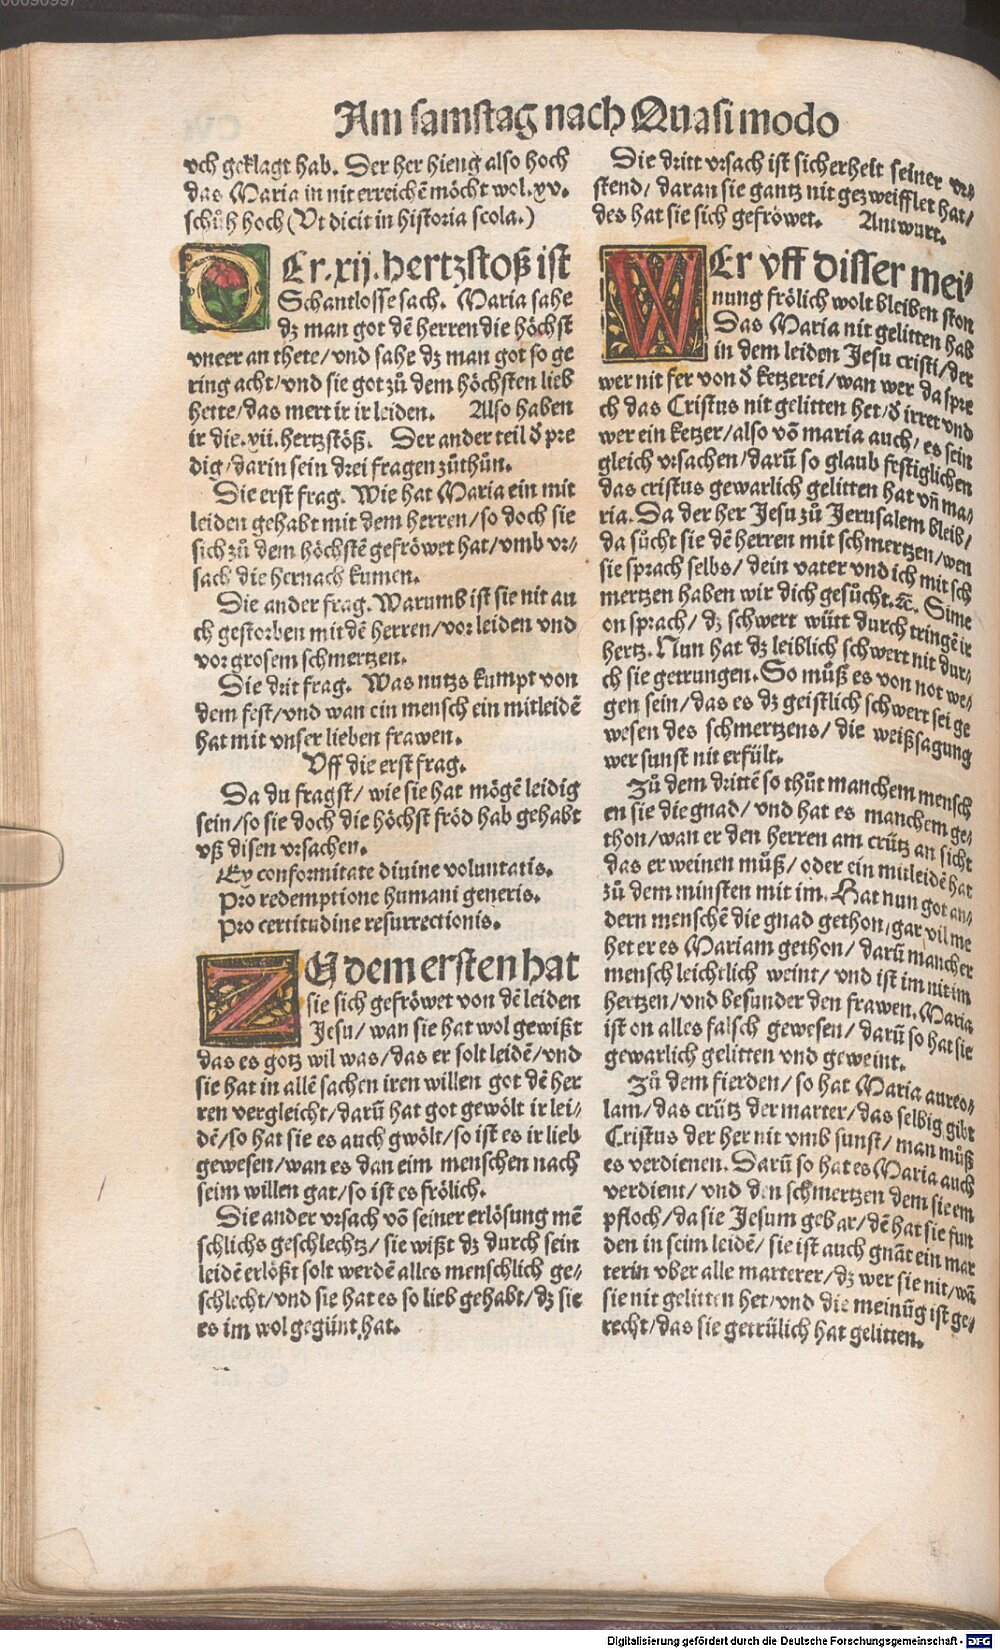 00090997
Am samstag nach Quasi modo
vch geklagt hab. Der her hieng also hoch
das Maria in nit erreichē möcht wol.xv.
schůh hoch (Vt dicit in historia scola.)
DEr.xij.hertzstoß ist
Schantlosse sach. Maria sahe
dz man got dē herren die höchst
vneer an thete/vnd sahe dz man got so ge
ring acht/vnd sie got zů dem höchsten lieb
hette/das mert ir ir leiden. Also haben
ir die.xii.hertzstöß. Der ander teil d̄ pre
dig/darin sein drei fragen zůthůn.
Die erst frag. Wie hat Maria ein mit
leiden gehabt mit dem herren/so doch sie
sich zů dem höchstē gefröwet hat/vmb vr⸗
sach die hernach kumen.
Die ander frag. Warumb ist sie nit au
ch gestorben mit dē herren/vor leiden vnd
vor grosem schmertzen.
Die drit frag. Was nutzs kumpt von
dem fest/vnd wan ein mensch ein mitleidē
hat mit vnser lieben frawen.
Vff die erst frag.
Da du fragst/wie sie hat mögē leidig
sein/so sie doch die höchst fröd hab gehabt
vß disen vrsachen.
Ex conformitate diuine voluntatis.
Pro redemptione humani generis.
Pro certitudine resurrectionis.
ZU dem ersten hat
sie sich gefröwet von dē leiden
Jesu/wan sie hat wol gewißt
das es gotz wil was/das er solt leidē/vnd
sie hat in allē sachen iren willen got dē her
ren vergleicht/darū hat got gewölt ir lei⸗
dē/so hat sie es auch gwölt/so ist es ir lieb
gewesen/wan es dan eim menschen nach
seim willen gat/so ist es frölich.
Die ander vrsach vō seiner erlösung mē
schlichs geschlechtz/sie wißt dz durch sein
leidē erlößt solt werdē alles menschlich ge⸗
schlecht/vnd sie hat es so lieb gehabt/dz sie
es im wol gegünt hat.
Die dritt vrsach ist sicherheit seiner vr⸗
stend/daran sie gantz nit gezweifflet hat/
des hat sie sich gefröwet. Antwurt.
WEr vff disser mei⸗
nung frölich wolt bleiben ston
Das Maria nit gelitten hab
in dem leiden Jesu cristi/der
wer nit fer von d̄ ketzerei/wan wer da spre
ch das Cristus nit gelitten het/d̄ irret vnd
wer ein ketzer/also vō maria auch/es sein
gleich vrsachen/darū so glaub festiglichen
das cristus gewarlich gelitten hat vn̄ ma⸗
ria. Da der her Jesu zů Jerusalem bleib/
da sůcht sie dē herren mit schmertzen/wen
sie sprach selbs/dein vater vnd ich mit sch
mertzen haben wir dich gesůcht.⁊c. Sime
on sprach/dz schwert wütt durch tringē ir
hertz. Nun hat dz leiblich schwert nit dur⸗
ch sie getrungen. So můß es von not we⸗
gen sein/das es dz geistlich schwert sei ge
wesen des schmertzens/die weißsagung
wer sunst nit erfült.
Zů dem drittē so thůt manchem mensch
en sie die gnad/vnd hat es manchem ge⸗
thon/wan er den herren am crütz an sicht
das er weinen můß/oder ein mitleidē hat
zů dem minsten mit im. Hat nun got an/
dern menschē die gnad gethon/gar vil me
het er es Mariam gethon/darū mancher
mensch leichtlich weint/vnd ist im nit im
hertzen/vnd besunder den frawen. Maria
ist on alles falsch gewesen/darū so hat sie
gewarlich gelitten vnd geweint.
Zů dem fierden/so hat Maria aureo⸗
lam/das crütz der marter/das selbig gibt
Cristus der her nit vmb sunst/man můß
es verdienen. Darū so hat es Maria auch
verdient/vnd den schmertzen dem sie em
pfloch/da sie Jesum gebar/dē hat sie fun
den in seim leidē/sie ist auch gnāt ein mar
terin vber alle marterer/dz wer sie nit/wā
sie nit gelitten het/vnd die meinūg ist ge⸗
recht/das sie getrülich hat gelitten.
Digitalisierung gefördert durch die Deutsche Forschungsgemeinschaft - DFG